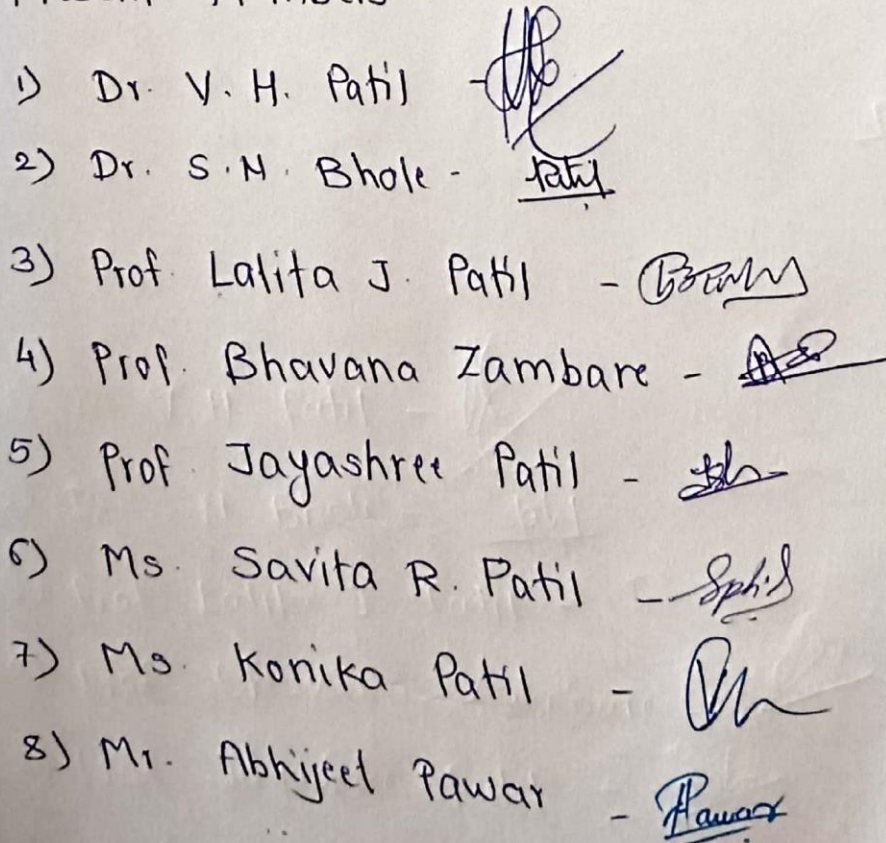 1) Dr. V. H. Patil -
2) Dr. S. N. Bhole - Patil
3) Prof. Lalita J. Patil -
4) Prof. Bhavana Zambare -
5) Prof Jayashree Patil -
6) Ms. Savita R. Patil -
7) Ms. Konika Patil -
8) Mr. Abhijeet Pawar - Pawar